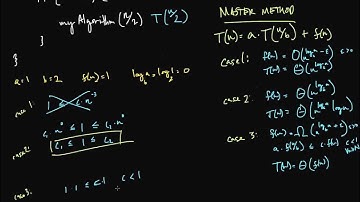 {
my Algorithm (n/2) T(n/2)
}
}
a=1 b=2 f(n)=1 log_b a = log_2 1 = 0
case 1: 1 ≤ c·n^-ε
c₁·n⁰ ≤ 1 ≤ c₂·n⁰
case 2: c₁ ≤ 1 ≤ c₂
case 3: 1·1 ≤ c·1 c<1
MASTER METHOD
T(n) = a·T(n/b) + f(n)
Case 1: f(n) = O(n^(log_b a - ε)) ε>0
T(n) = Θ(n^(log_b a))
case 2: f(n) = Θ(n^(log_b a))
T(n) = Θ(n^(log_b a) log n)
case 3: f(n) = Ω(n^(log_b a + ε)) ε>0
a·f(n/b) ≤ c·f(n) c<1
T(n) = Θ(f(n))